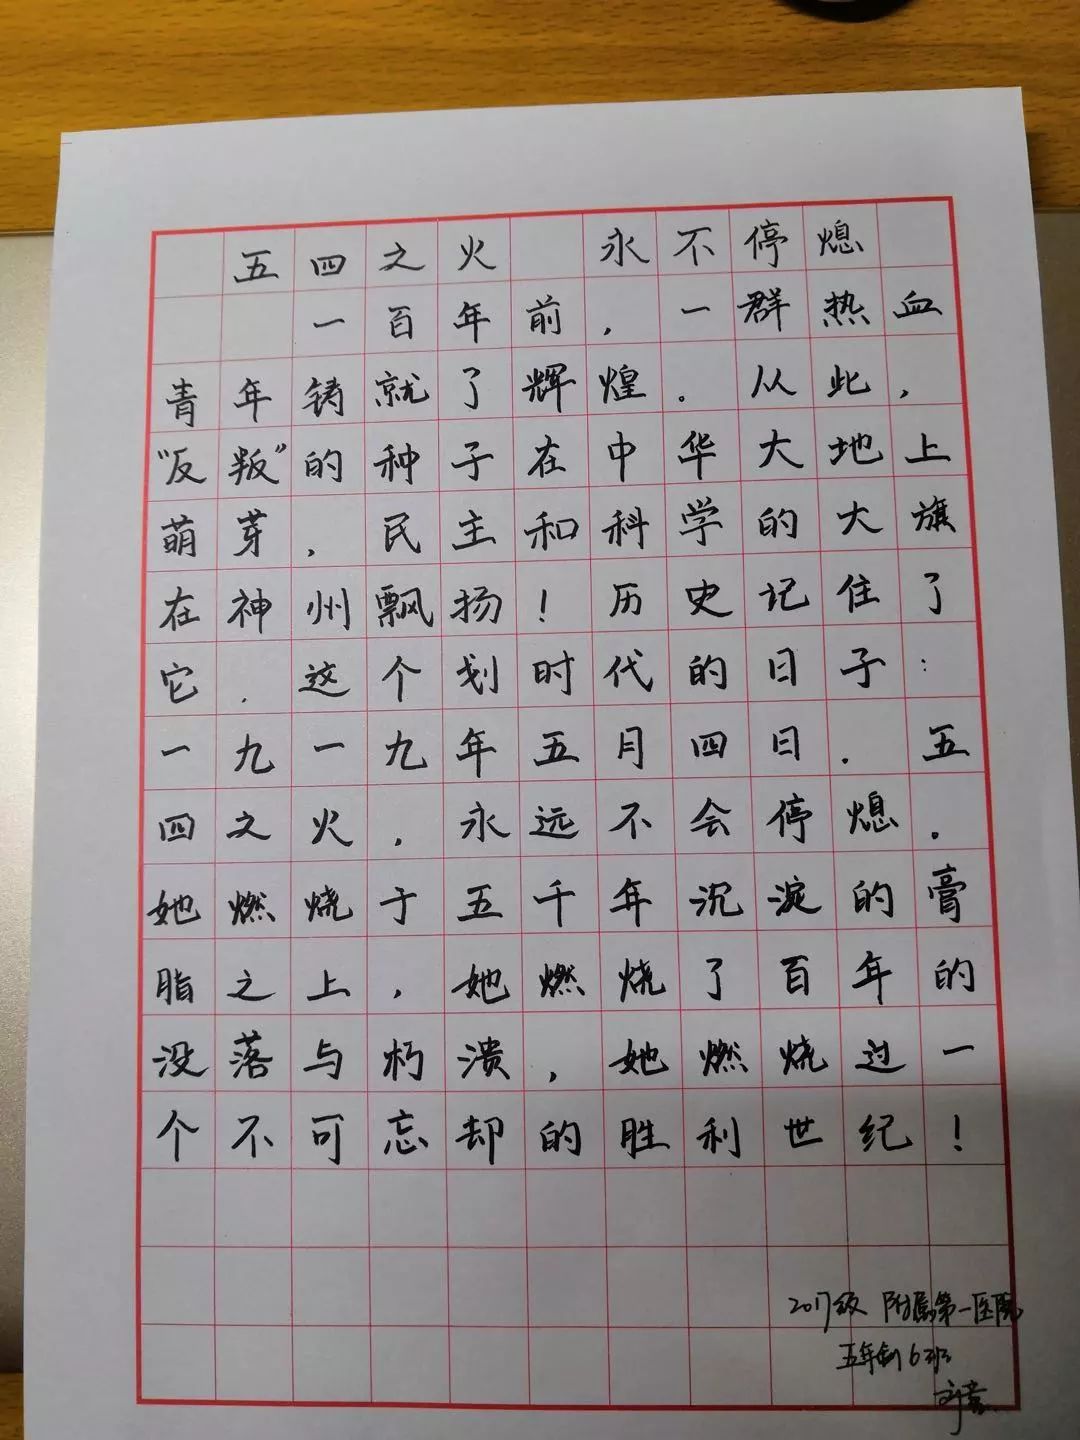 五四之火 永不停熄
一百年前，一群热血
青年铸就了辉煌．从此，
“反叛”的种子在中华大地上
萌芽，民主和科学的大旗
在神州飘扬！历史记住了
它．这个划时代的日子：
一九一九年五月四日．五
四之火，永远不会停熄．
她燃烧于五千年沉淀的膏
脂之上，她燃烧了百年的
没落与朽溃，她燃烧过一
个不可忘却的胜利世纪！
2017级 附属第一医院
五年制6班